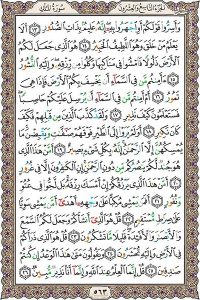 الجزء التاسع والعشرون سورة الملك
وَأَسِرُّوا۟ قَوْلَكُمْ أَوِ ٱجْهَرُوا۟ بِهِۦٓ إِنَّهُۥ عَلِيمٌۢ بِذَاتِ ٱلصُّدُورِ ١٣ أَلَا
يَعْلَمُ مَنْ خَلَقَ وَهُوَ ٱللَّطِيفُ ٱلْخَبِيرُ ١٤ هُوَ ٱلَّذِى جَعَلَ لَكُمُ
ٱلْأَرْضَ ذَلُولًا فَٱمْشُوا۟ فِى مَنَاكِبِهَا وَكُلُوا۟ مِن رِّزْقِهِۦ وَإِلَيْهِ ٱلنُّشُورُ
١٥ ءَأَمِنتُم مَّن فِى ٱلسَّمَآءِ أَن يَخْسِفَ بِكُمُ ٱلْأَرْضَ فَإِذَا هِىَ
تَمُورُ ١٦ أَمْ أَمِنتُم مَّن فِى ٱلسَّمَآءِ أَن يُرْسِلَ عَلَيْكُمْ حَاصِبًا
فَسَتَعْلَمُونَ كَيْفَ نَذِيرِ ١٧ وَلَقَدْ كَذَّبَ ٱلَّذِينَ مِن قَبْلِهِمْ فَكَيْفَ
كَانَ نَكِيرِ ١٨ أَوَلَمْ يَرَوْا۟ إِلَى ٱلطَّيْرِ فَوْقَهُمْ صَٰٓفَّٰتٍ وَيَقْبِضْنَ مَا
يُمْسِكُهُنَّ إِلَّا ٱلرَّحْمَٰنُ إِنَّهُۥ بِكُلِّ شَىْءٍۭ بَصِيرٌ ١٩ أَمَّنْ هَٰذَا ٱلَّذِى
هُوَ جُندٌ لَّكُمْ يَنصُرُكُم مِّن دُونِ ٱلرَّحْمَٰنِ إِنِ ٱلْكَٰفِرُونَ إِلَّا فِى غُرُورٍ
٢٠ أَمَّنْ هَٰذَا ٱلَّذِى يَرْزُقُكُمْ إِنْ أَمْسَكَ رِزْقَهُۥ بَل لَّجُّوا۟ فِى عُتُوٍّ وَنُفُورٍ
٢١ أَفَمَن يَمْشِى مُكِبًّا عَلَىٰ وَجْهِهِۦٓ أَهْدَىٰٓ أَمَّن يَمْشِى سَوِيًّا
عَلَىٰ صِرَٰطٍ مُّسْتَقِيمٍ ٢٢ قُلْ هُوَ ٱلَّذِىٓ أَنشَأَكُمْ وَجَعَلَ لَكُمُ ٱلسَّمْعَ
وَٱلْأَبْصَٰرَ وَٱلْأَفْـِٔدَةَ قَلِيلًا مَّا تَشْكُرُونَ ٢٣ قُلْ هُوَ ٱلَّذِى ذَرَأَكُمْ
فِى ٱلْأَرْضِ وَإِلَيْهِ تُحْشَرُونَ ٢٤ وَيَقُولُونَ مَتَىٰ هَٰذَا ٱلْوَعْدُ إِن كُنتُمْ
صَٰدِقِينَ ٢٥ قُلْ إِنَّمَا ٱلْعِلْمُ عِندَ ٱللَّهِ وَإِنَّمَآ أَنَا۠ نَذِيرٌ مُّبِينٌ ٢٦
٥٦٣